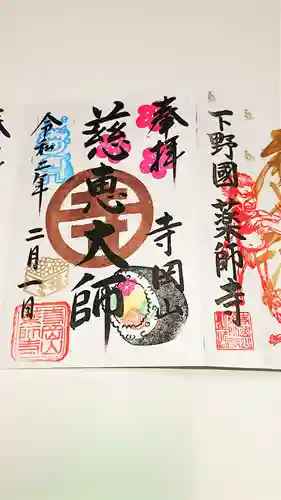 下野國薬師寺
奉拝
寺岡山
慈恵大師
令和二年
二月一日